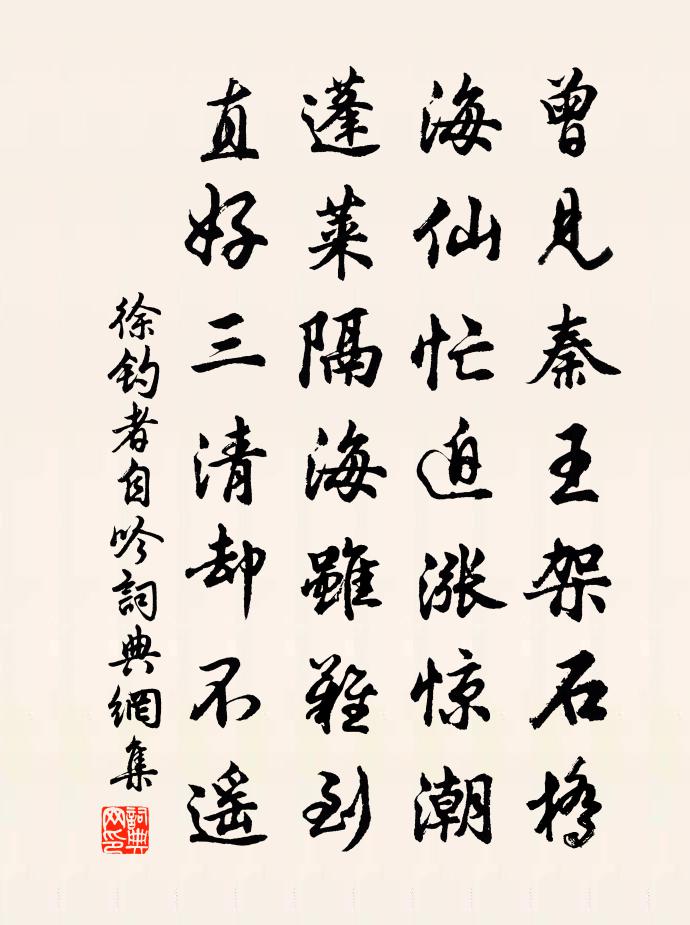 曾見秦王架石橋
海仙忙迫漲惊潮
蓬萊隔海雖難到
直好三清却不遥
徐钓者自吟詞典網集
詞典
网印